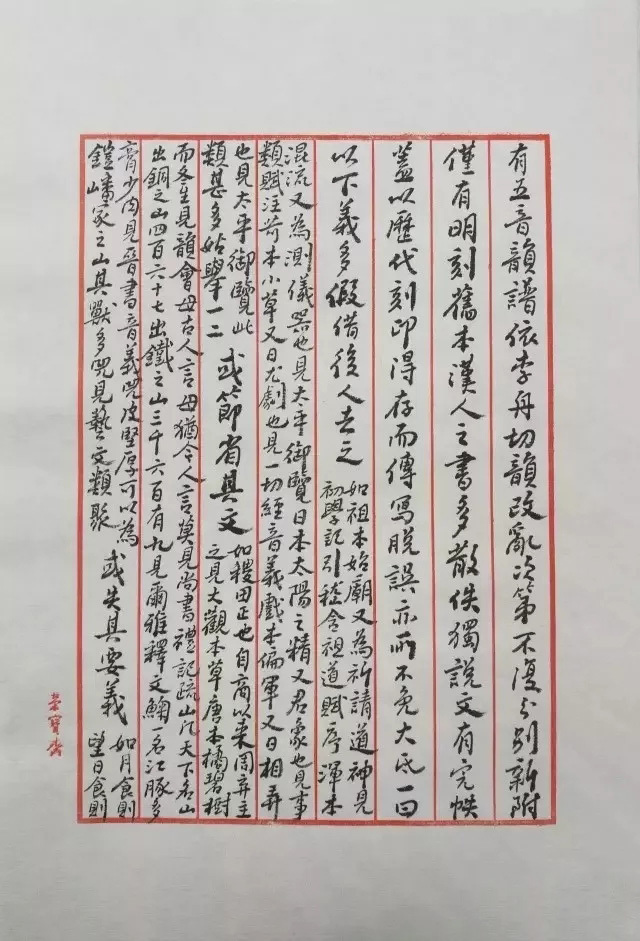 有五音韻譜依李舟切韻改亂次第不復分別新附
僅有明刻舊本漢人之書多散佚獨說文有完帙
蓋以歷代刻印得存而傳寫脫誤亦所不免大氐一曰
以下義多假借後人去之
如祖本始廟又為祈請道神見
初學記引嵇含祖道賦序渾本
混流又為測儀器也見太平御覽日本太陽之精又君象也見事
類賦注苛本小草又曰尤劇也見一切經音義戲本偏軍又曰相弄
也見太平御覽此
類甚多姑舉一二
或節省其文
如稷田正也自商以來周弃主
之見大觀本草唐本橘碧樹
而冬生見韻會毋古人言毋猶今人言莫見尚書禮記疏山凡天下名山
出銅之山四百六十七出鐵之山三千六百有九見爾雅釋文䱡一名江豚多
膏少肉見晉書音義兕皮堅厚可以為
鎧嶓冢之山其獸多兕見藝文類聚
或失其要義
如月食則
望日食則
榮寶齋